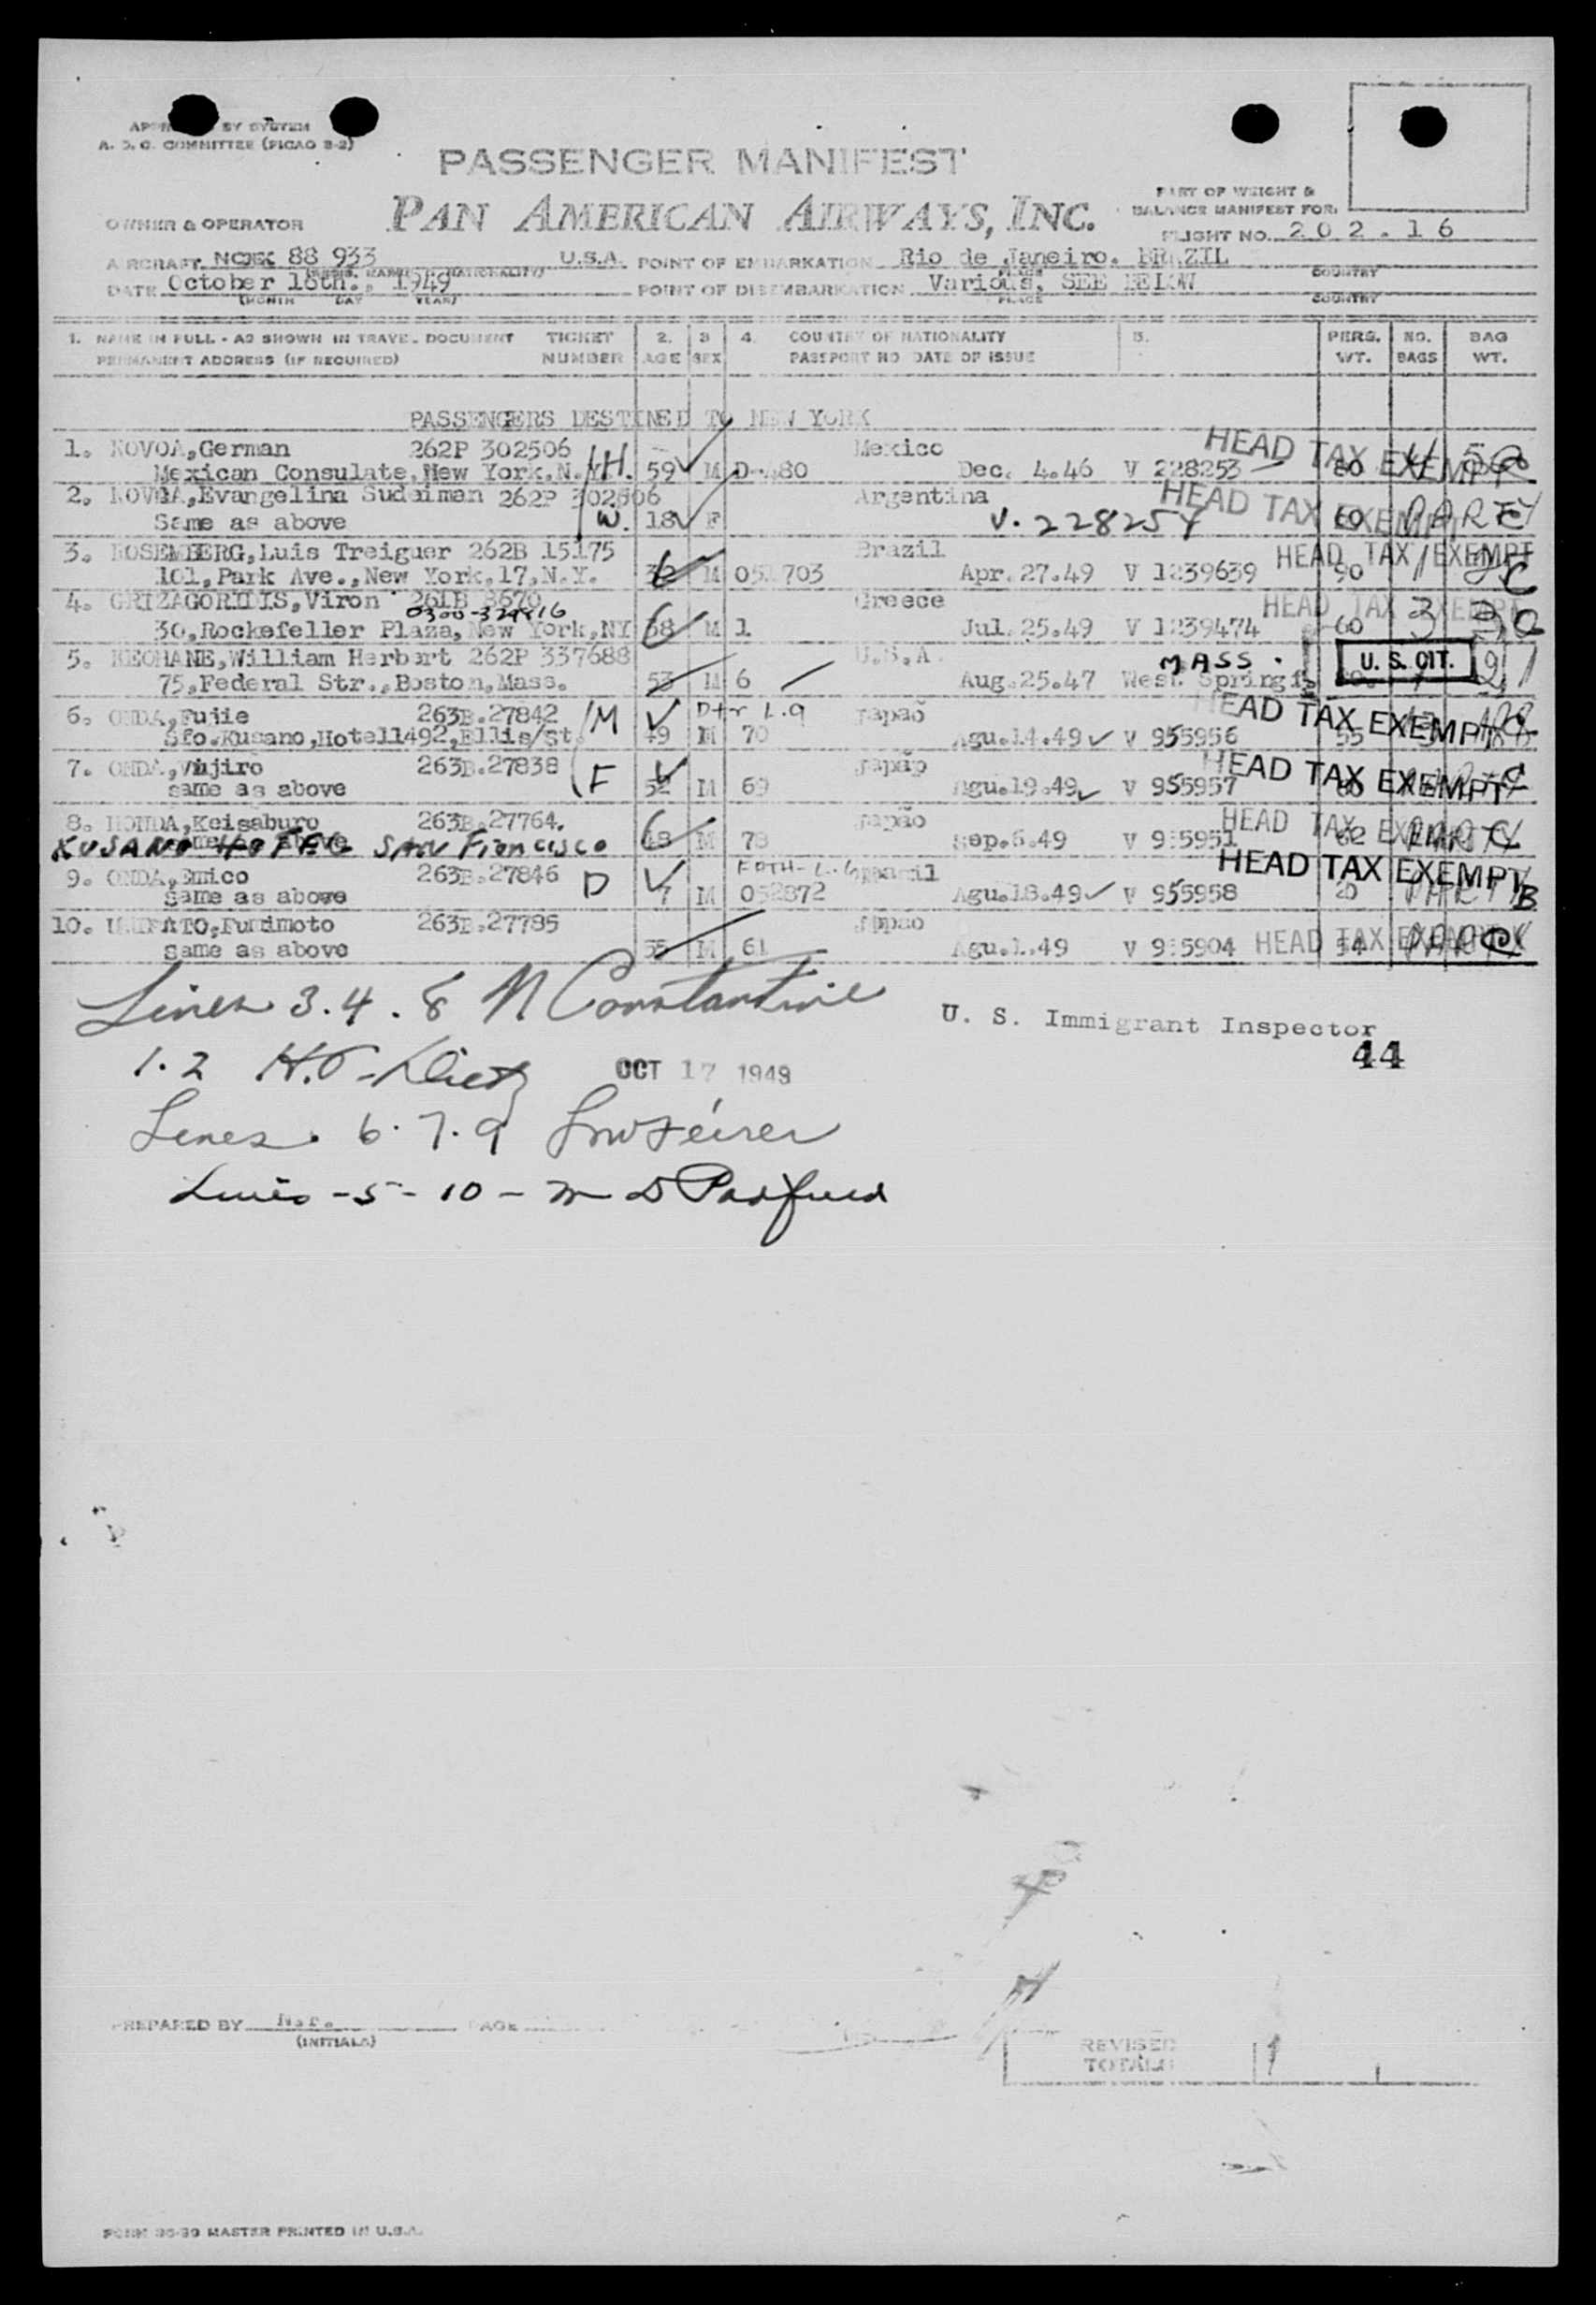 BY SYSTEM
A. D. C. COMMITTEE (PICAO 8-2)
PASSENGER MANIFEST
PAN AMERICAN AIRWAYS, INC.
OWNER & OPERATOR
PART OF WEIGHT &
BALANCE MANIFEST FOR:
FLIGHT NO. 202.16
AIRCRAFT 88 933 U.S.A. POINT OF EMBARKATION Rio de Janeiro. BRAZIL
DATE October 16th., 1949 POINT OF DISEMBARKATION Various, SEE BELOW
(MONTH DAY YEAR) PLACE COUNTRY
1. NAME IN FULL - AS SHOWN IN TRAVEL DOCUMENT TICKET 2. 3 4. COUNTRY OF NATIONALITY 5. PERS. NO. BAG
PERMANENT ADDRESS (IF REQUIRED) NUMBER AGE SEX PASSPORT NO DATE OF ISSUE WT. BAGS WT.
PASSENGERS DESTINED TO NEW YORK
1. NOVOA,German 262P 302506 Mexico HEAD TAX EXEMPT
Mexican Consulate,New York,N.Y. H. 59 M D-480 Dec. 4.46 V 228253 80
2. NOVOA,Evangelina 262P 302506 Argentina HEAD TAX EXEMPT
Same as above W. 18 F V. 228254 60 PARTY
3. ROSEMBERG,Luis Treiguer 262B 15175 Brazil HEAD TAX EXEMPT
101,Park Ave.,New York,17,N.Y. 32 M 051703 Apr.27.49 V 1239639 90 1 C
4. Viron 261B 8670 Greece HEAD TAX EXEMPT
30,Rockefeller Plaza,New York,NY 38 M 1 Jul.25.49 V 1239474 60 3
5. KEOHANE,William Herbert 262P 337688 U.S.A. MASS. U. S. CIT. 21
75,Federal Str.,Boston,Mass. 53 M 6 Aug.25.47 West. Springf.
6. ONDA,Fujie 263B.27842 M Dtr L.9 Japaõ HEAD TAX EXEMPT
Sfo.Kusano,Hotel1492,Ellis/St. 49 M 70 Agu.14.49 V 955956 55
7. ONDA, 263B.27838 F Japão HEAD TAX EXEMPT
same as above 52 M 69 Agu.19.49 V 955957 60
8. HONDA,Keisaburo 263B.27764. Japão HEAD TAX EXEMPT
KUSANO HOTEL SAN Francisco 48 M 78 Sep.6.49 V 955951 62 PARTY
9. ONDA,Emico 263B.27846 D Brazil HEAD TAX EXEMPT
same as above 7 M 052872 Agu.18.49 V 955958 20 PARTY B
10. Fumimoto 263B.27785 Japao
same as above 55 M 61 Agu.1.49 V 955904 HEAD TAX EXEMPT 54
Lines 3.4.8 N Constantine
U. S. Immigrant Inspector
44
1.2
OCT 17 1949
Lines 6.7.9
Lines -5-10-
PREPARED BY
(INITIALS)
PAGE
REVISED
TOTALS
FORM MASTER PRINTED IN U.S.A.